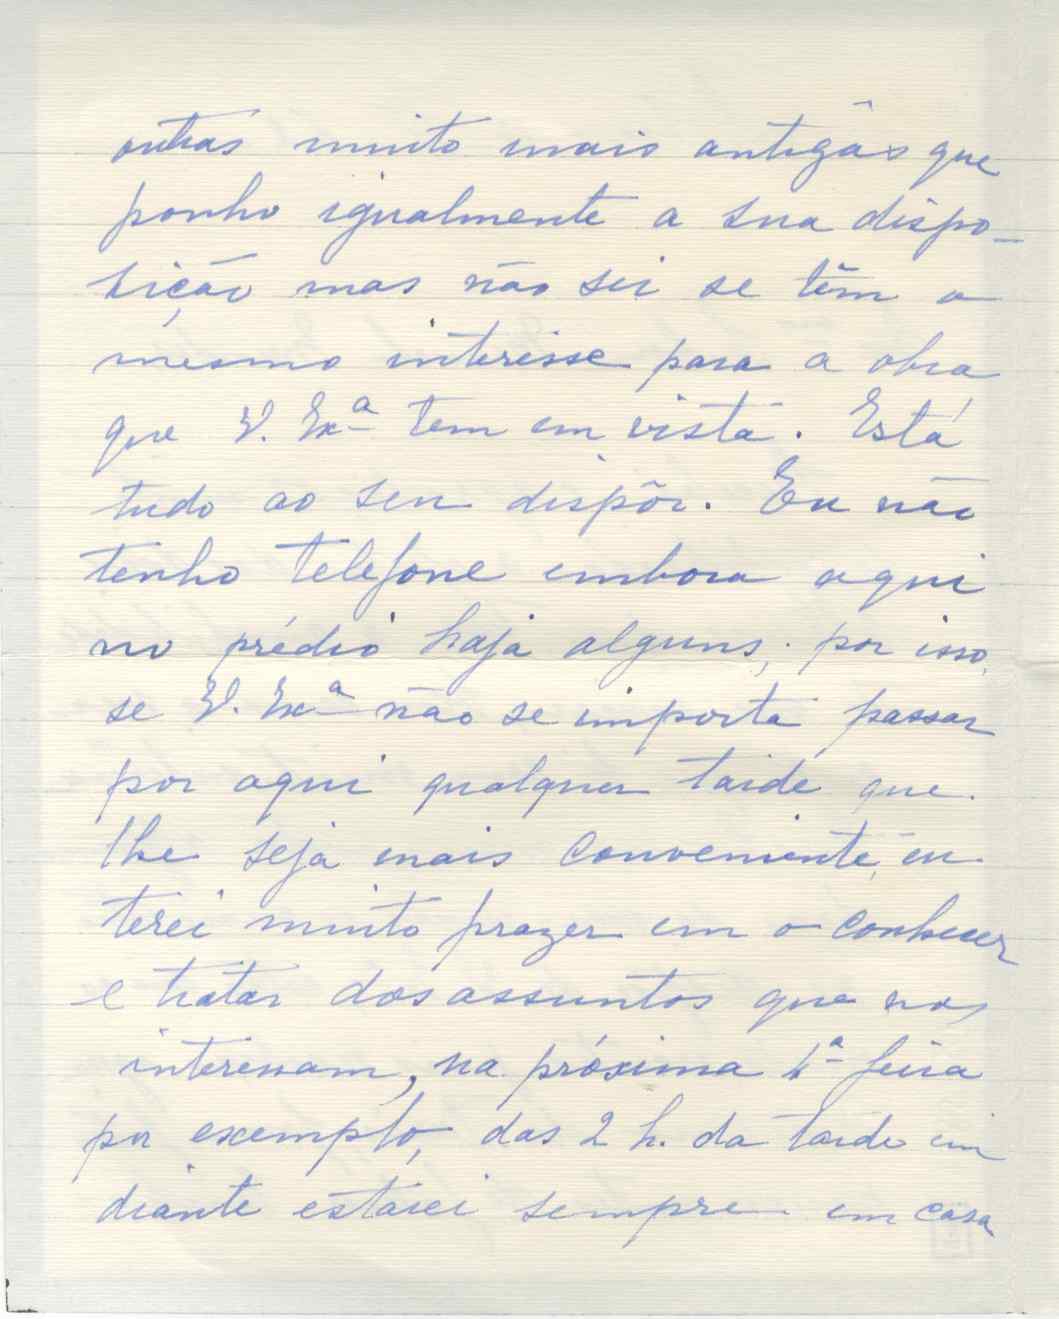 outras muito mais antigas que
ponho igualmente a sua dispo-
sição mas não sei se têm o
mesmo interesse para a obra
que V. Exª tem em vista. Está
tudo ao seu dispôr. Eu não
tenho telefone embora aqui
no prédio haja alguns; por isso,
se V. Exª não se importa passar
por aqui qualquer tarde que
lhe seja mais conveniente, eu
terei muito prazer em o conhecer
e tratar dos assuntos que nos
interessam, na próxima 4ª feira
por exemplo, das 2 h. da tarde em
diante estarei sempre em casa